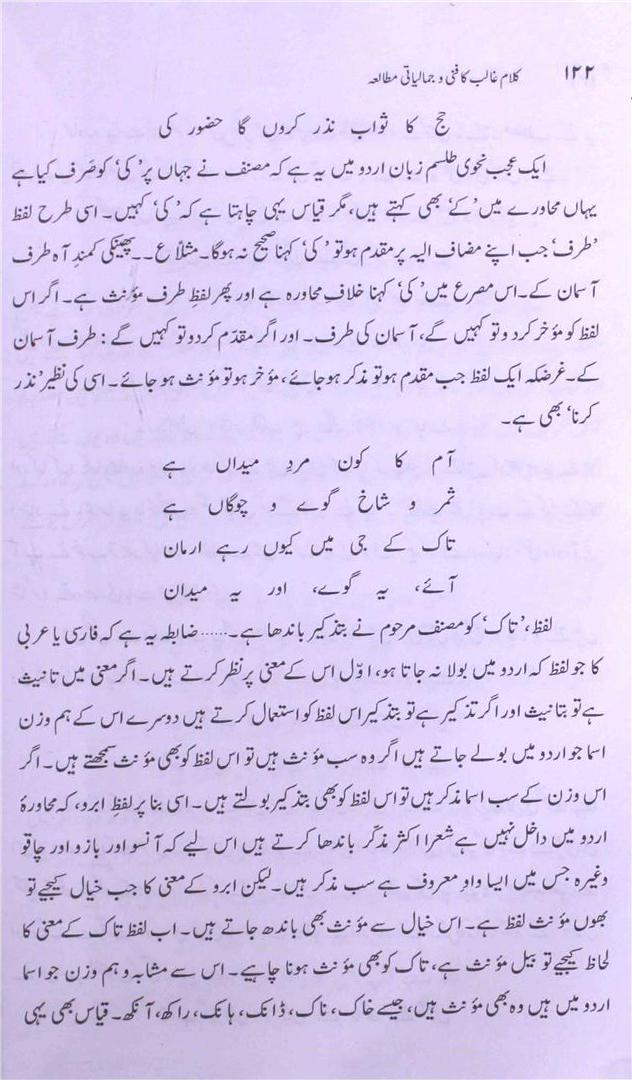 ۱۲۲ کلام غالب کا فنی و جمالیاتی مطالعہ
حج کا ثواب نذر کروں گا حضور کی
ایک عجب نحوی طلسم زبان اردو میں یہ ہے کہ مصنف نے جہاں پر ’کی‘ کو صَرف کیا ہے
یہاں محاورے میں ’کے‘ بھی کہتے ہیں، مگر قیاس یہی چاہتا ہے کہ ’کی‘ کہیں۔ اسی طرح لفظ
’طرف‘ جب اپنے مضاف الیہ پر مقدم ہو تو ’کی‘ کہنا صحیح نہ ہوگا۔ مثلاً ع۔۔ پھینکی کمندِ آہ طرف
آسمان کے۔ اس مصرع میں ’کی‘ کہنا خلافِ محاورہ ہے اور پھر لفظِ طرف مؤنث ہے۔ اگر اس
لفظ کو مؤخر کردو تو کہیں گے، آسمان کی طرف۔ اور اگر مقدّم کردو تو کہیں گے: طرف آسمان
کے۔ غرضکہ ایک لفظ جب مقدم ہو تو مذکر ہوجائے، مؤخر ہو تو مؤنث ہوجائے۔ اسی کی نظیر ’نذر
کرنا‘ بھی ہے۔
آم کا کون مردِ میداں ہے
ثمر و شاخ گوے و چوگاں ہے
تاک کے جی میں کیوں رہے ارمان
آئے، یہ گوے، اور یہ میدان
لفظ، ’تاک‘ کو مصنف مرحوم نے بتذکیر باندھا ہے۔...... ضابطہ یہ ہے کہ فارسی یا عربی
کا جو لفظ کہ اردو میں بولا نہ جاتا ہو، اوّل اس کے معنی پر نظر کرتے ہیں۔ اگر معنی میں تانیث
ہے تو بتانیث اور اگر تذکیر ہے تو بتذکیر اس لفظ کو استعمال کرتے ہیں دوسرے اس کے ہم وزن
اسما جو اردو میں بولے جاتے ہیں اگر وہ سب مؤنث ہیں تو اس لفظ کو بھی مؤنث سمجھتے ہیں۔ اگر
اس وزن کے سب اسما مذکر ہیں تو اس لفظ کو بھی بتذکیر بولتے ہیں۔ اسی بنا پر لفظِ ابرو، کہ محاورۂ
اردو میں داخل نہیں ہے شعرا اکثر مذکّر باندھا کرتے ہیں اس لیے کہ آنسو اور بازو اور چاقو
وغیرہ جس میں ایسا واوِ معروف ہے سب مذکر ہیں۔ لیکن ابرو کے معنی کا جب خیال کیجیے تو
بھوں مؤنث لفظ ہے۔ اس خیال سے مؤنث بھی باندھ جاتے ہیں۔ اب لفظ تاک کے معنی کا
لحاظ کیجیے تو بیل مؤنث ہے، تاک کو بھی مؤنث ہونا چاہیے۔ اس سے مشابہ و ہم وزن جو اسما
اردو میں ہیں وہ بھی مؤنث ہیں، جیسے خاک، ناک، ڈانک، ہانک، راکھ، آنکھ۔ قیاس بھی یہی